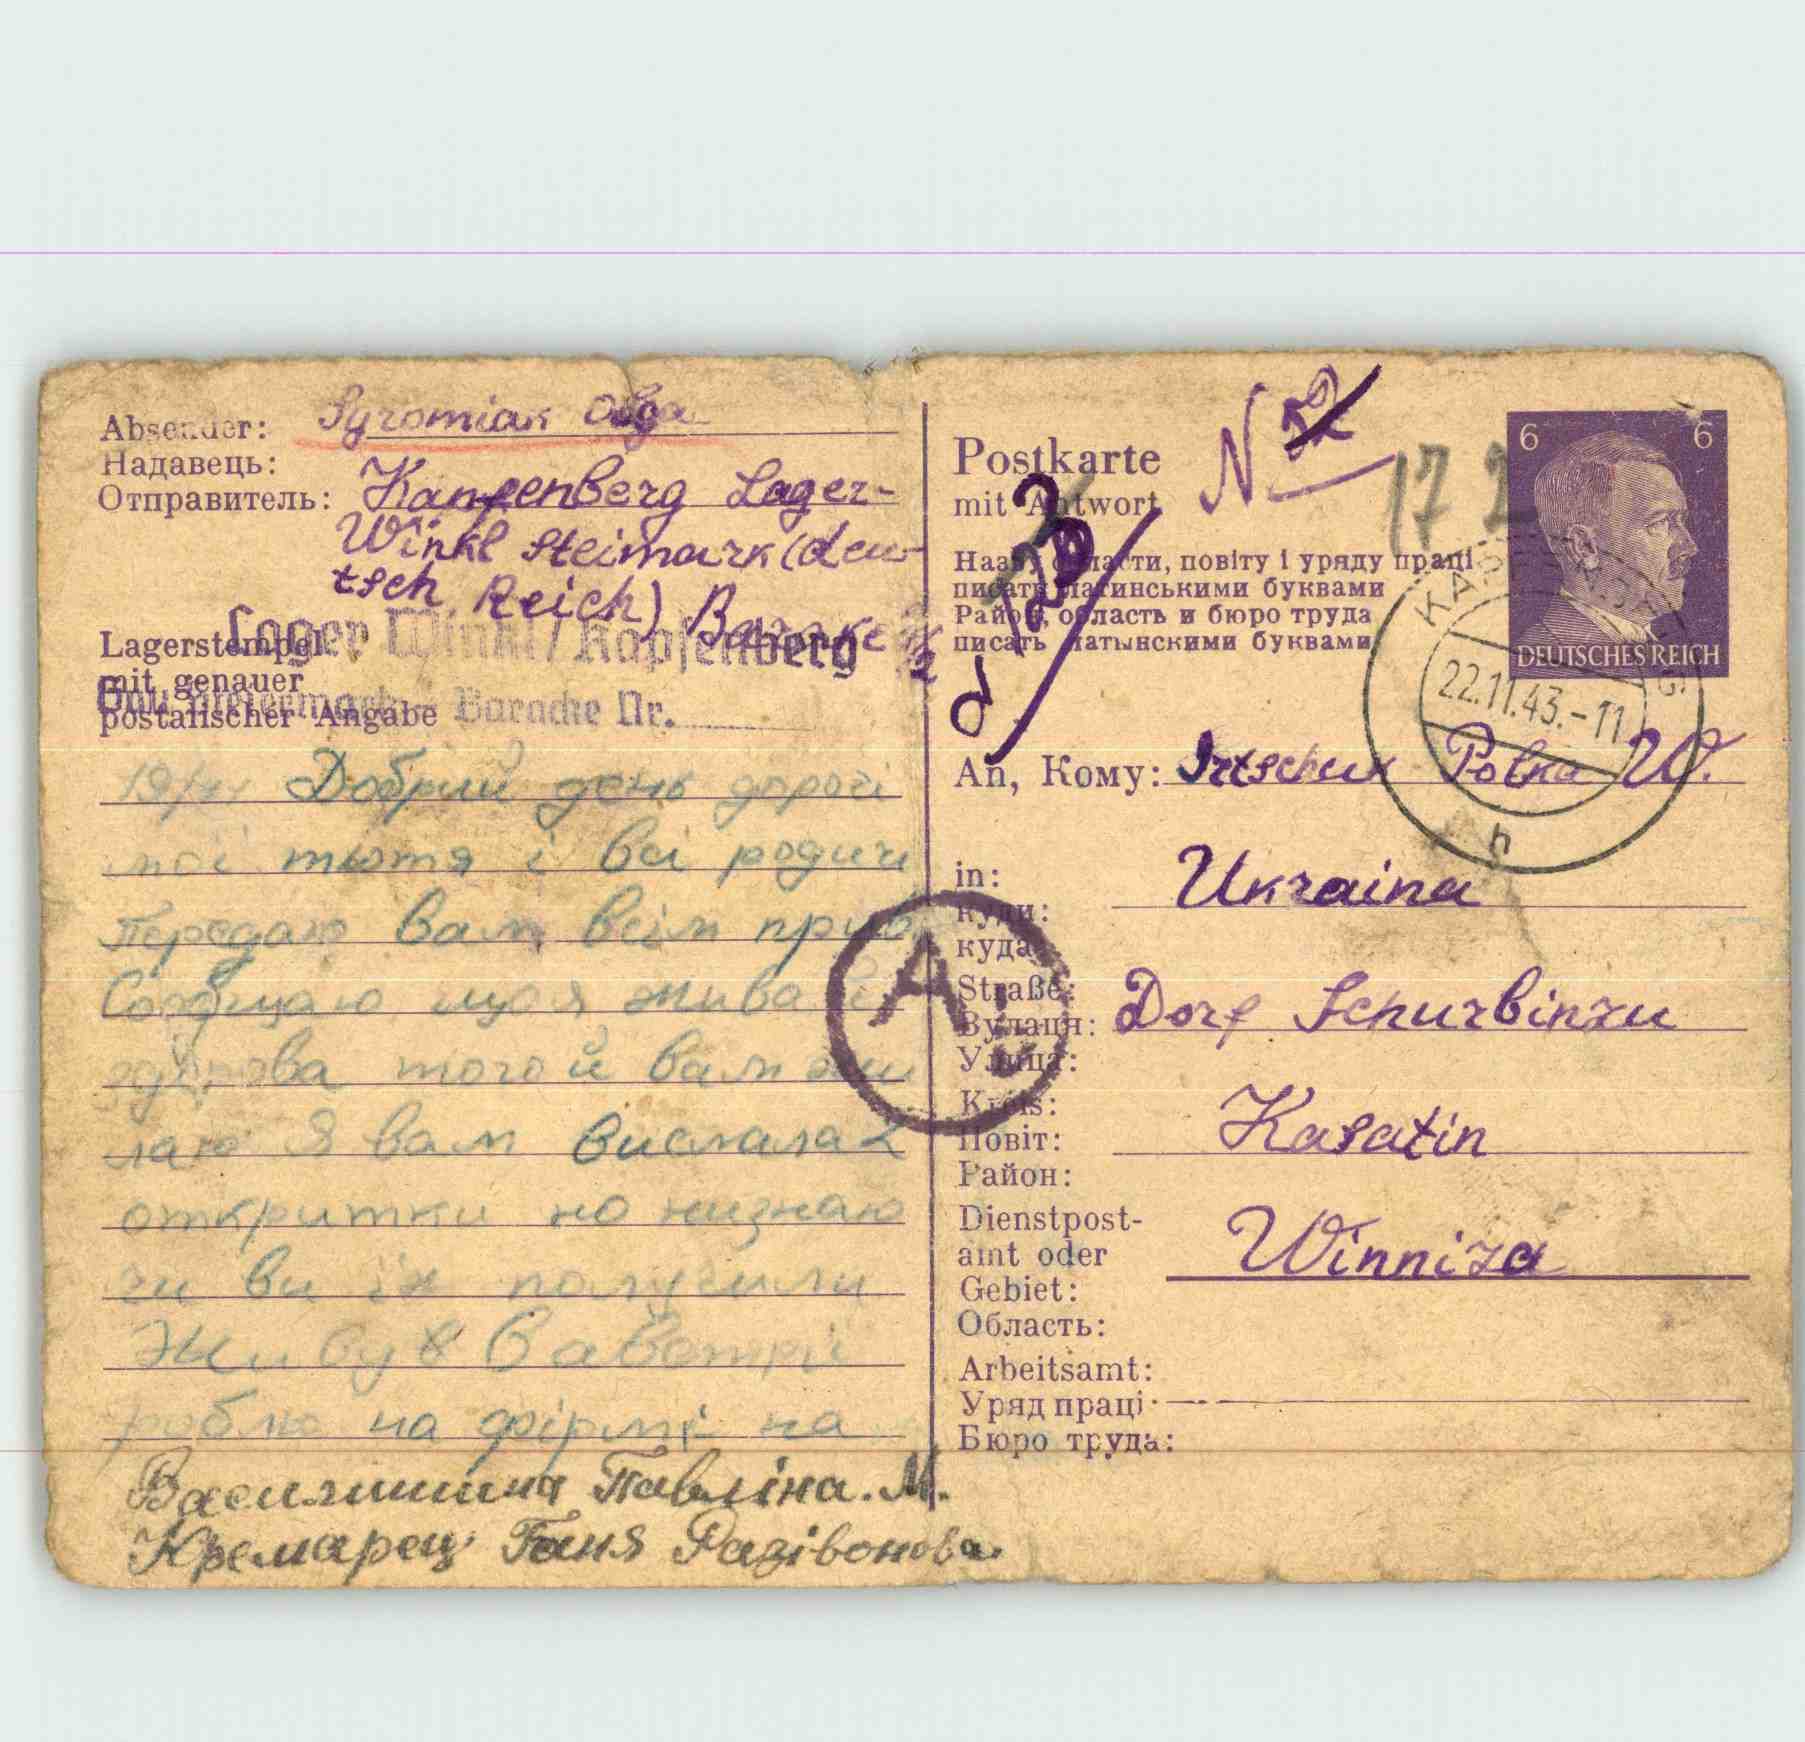 Absender: Syromiak Olga
Надавець:
Отправитель: Kanfenberg Lager-
Winkl Steimark (deu-
tsch Reich) Baracke
Lager Winkl / Kapfenberg
Lagerstempel
mit genauer
postalischer Angabe
Baracke Nr.
Добрий день дорогі
мої тьотя і всі родичі
Передаю вам всім приві
Сообщаю що я жива і
здорова того й вам жи
лаю Я вам вислала 2
откритки но незнаю
чи ви їх получили
Живу в Австрії
роблю на фірмі на
Василишина Павліна. М.
Кремарец Ганя Разівонова.
Postkarte
mit Antwort
N 52
17 2
Назву области, повіту і уряду праці
писати латинськими буквами
Район, область и бюро труда
писать латынскими буквами
6 6
DEUTSCHES REICH
22.11.43.-11
h
An, Кому: Irtschuk Polka W.
in:
куди:
куда:
Ukraina
A
Straße:
Вулаця:
Улица:
Dorf Schurbinzu
Kreis:
Повіт:
Район:
Kasatin
Dienstpost-
amt oder
Gebiet:
Область:
Winniza
Arbeitsamt:
Уряд праці:
Бюро труда: